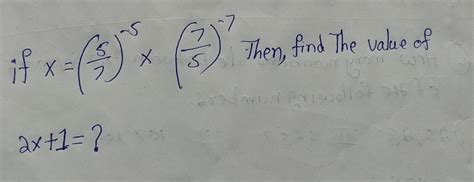 if x = (5/7)^-5 × (7/5)^-7 Then, find The value of
2x+1=?